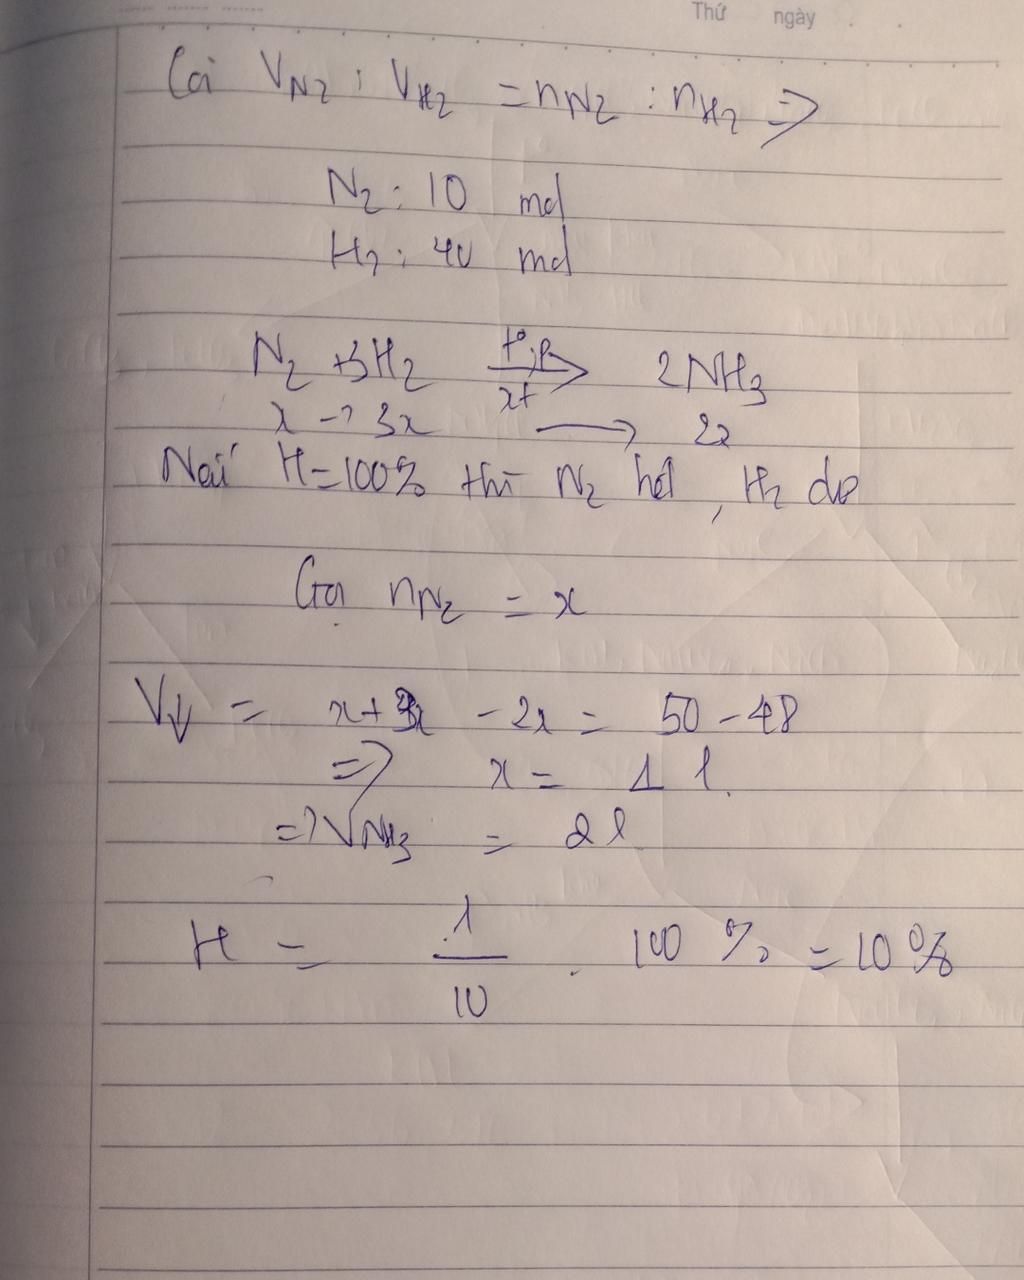 Thứ ngày
Coi V_N2 : V_H2 = n_N2 : n_H2 =>
N2 : 10 mol
H2 : 40 mol
N2 + 3H2 t°, p xt → 2NH3
x → 3x → 2x
Nếu H = 100% thì N2 hết, H2 dư
Gọi n_N2 = x
V↓ = x + 3x - 2x = 50 - 48
=> x = 1 l.
=> V_NH3 = 2 l
H = 1/10 . 100 % = 10%